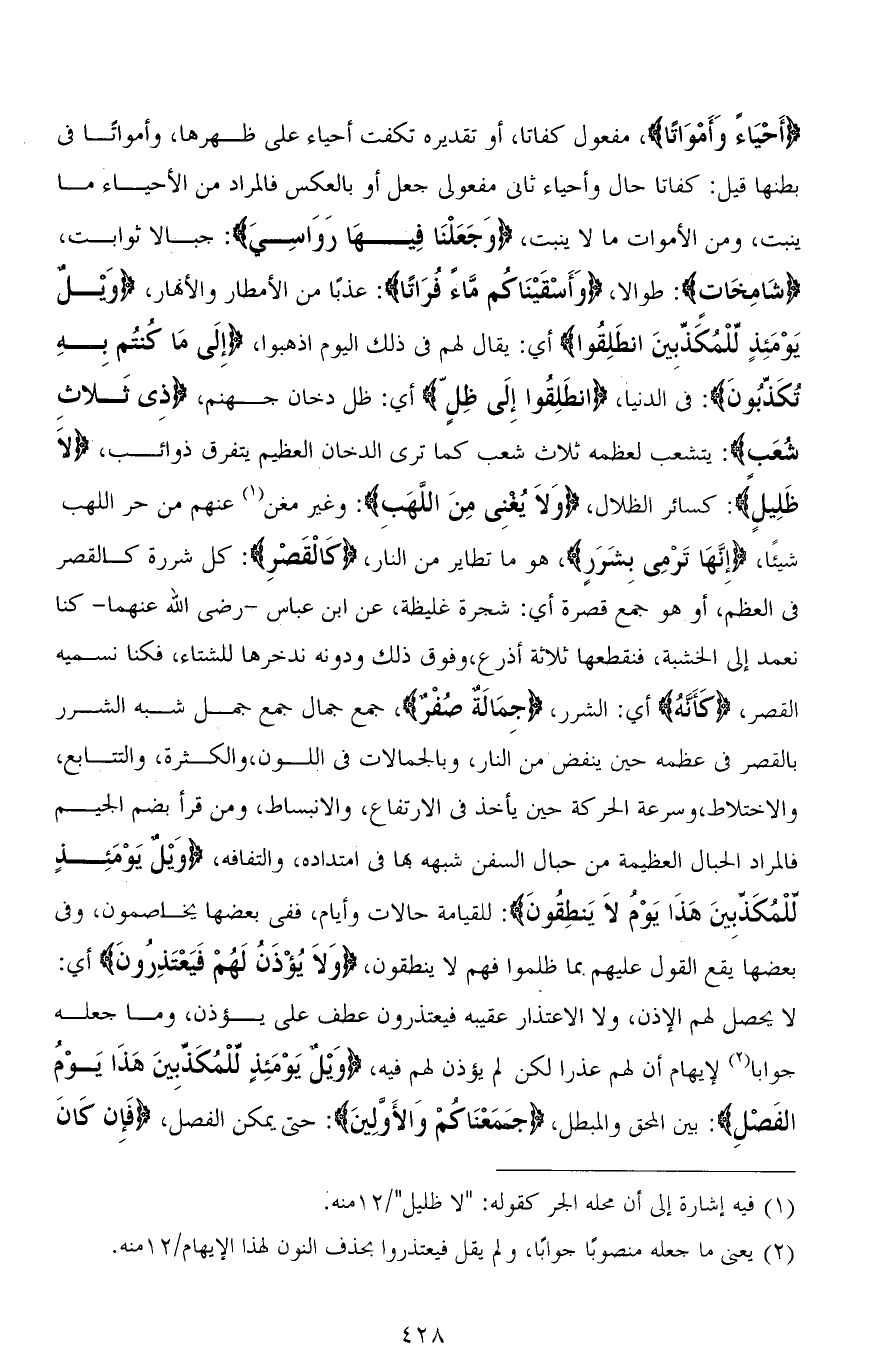 ﴿أَحْيَاءً وَأَمْوَاتًا﴾، مفعول كفاتا، أو تقديره تكفت أحياء على ظهرها، وأمواتًا فى
بطنها قيل: كفاتا حال وأحياء ثانى مفعولى جعل أو بالعكس فالمراد من الأحياء ما
ينبت، ومن الأموات ما لا ينبت، ﴿وَجَعَلْنَا فِيهَا رَوَاسِيَ﴾: جبالا ثوابت،
﴿شَامِخَاتٍ﴾: طوالا، ﴿وَأَسْقَيْنَاكُم مَّاءً فُرَاتًا﴾: عذبًا من الأمطار والأنهار، ﴿وَيْلٌ
يَوْمَئِذٍ لِّلْمُكَذِّبِينَ انطَلِقُوا﴾ أي: يقال لهم فى ذلك اليوم اذهبوا، ﴿إِلَى مَا كُنتُم بِهِ
تُكَذِّبُونَ﴾: فى الدنيا، ﴿انطَلِقُوا إِلَى ظِلٍّ﴾ أي: ظل دخان جهنم، ﴿ذِى ثَلاثِ
شُعَبٍ﴾: يتشعب لعظمه ثلاث شعب كما ترى الدخان العظيم يتفرق ذوائب، ﴿لاَ
ظَلِيلٍ﴾: كسائر الظلال، ﴿وَلاَ يُغْنِى مِنَ اللَّهَبِ﴾: وغير مغن(١) عنهم من حر اللهب
شيئًا، ﴿إِنَّهَا تَرْمِى بِشَرَرٍ﴾، هو ما تطاير من النار، ﴿كَالْقَصْرِ﴾: كل شررة كالقصر
فى العظم، أو هو جمع قصرة أي: شجرة غليظة، عن ابن عباس -رضى الله عنهما- كنا
نعمد إلى الخشبة، فنقطعها ثلاثة أذرع،وفوق ذلك ودونه ندخرها للشتاء، فكنا نسميه
القصر، ﴿كَأَنَّهُ﴾ أي: الشرر، ﴿جِمَالَةٌ صُفْرٌ﴾، جمع جمال جمع جمل شبه الشرر
بالقصر فى عظمه حين ينفض من النار، وبالجمالات فى اللون،والكثرة، والتتابع،
والاختلاط،وسرعة الحركة حين يأخذ فى الارتفاع، والانبساط، ومن قرأ بضم الجيم
فالمراد الحبال العظيمة من حبال السفن شبهه بها فى امتداده، والتفافه، ﴿وَيْلٌ يَوْمَئِذٍ
لِّلْمُكَذِّبِينَ هَذَا يَوْمُ لاَ يَنطِقُونَ﴾: للقيامة حالات وأيام، ففى بعضها يخاصمون، وفى
بعضها يقع القول عليهم بما ظلموا فهم لا ينطقون، ﴿وَلاَ يُؤْذَنُ لَهُمْ فَيَعْتَذِرُونَ﴾ أي:
لا يحصل لهم الإذن، ولا الاعتذار عقيبه فيعتذرون عطف على يؤذن، وما جعله
جوابا(٢) لإيهام أن لهم عذرا لكن لم يؤذن لهم فيه، ﴿وَيْلٌ يَوْمَئِذٍ لِّلْمُكَذِّبِينَ هَذَا يَوْمُ
الفَصْلِ﴾: بين المحق والمبطل، ﴿جَمَعْنَاكُمْ وَالأَوَّلِينَ﴾: حتى يمكن الفصل، ﴿فَإِن كَانَ
(١) فيه إشارة إلى أن محله الجر كقوله: "لا ظليل"/١٢منه.
(٢) يعنى ما جعله منصوبًا جوابًا، ولم يقل فيعتذروا بحذف النون لهذا الإيهام/١٢منه.
٤٢٨